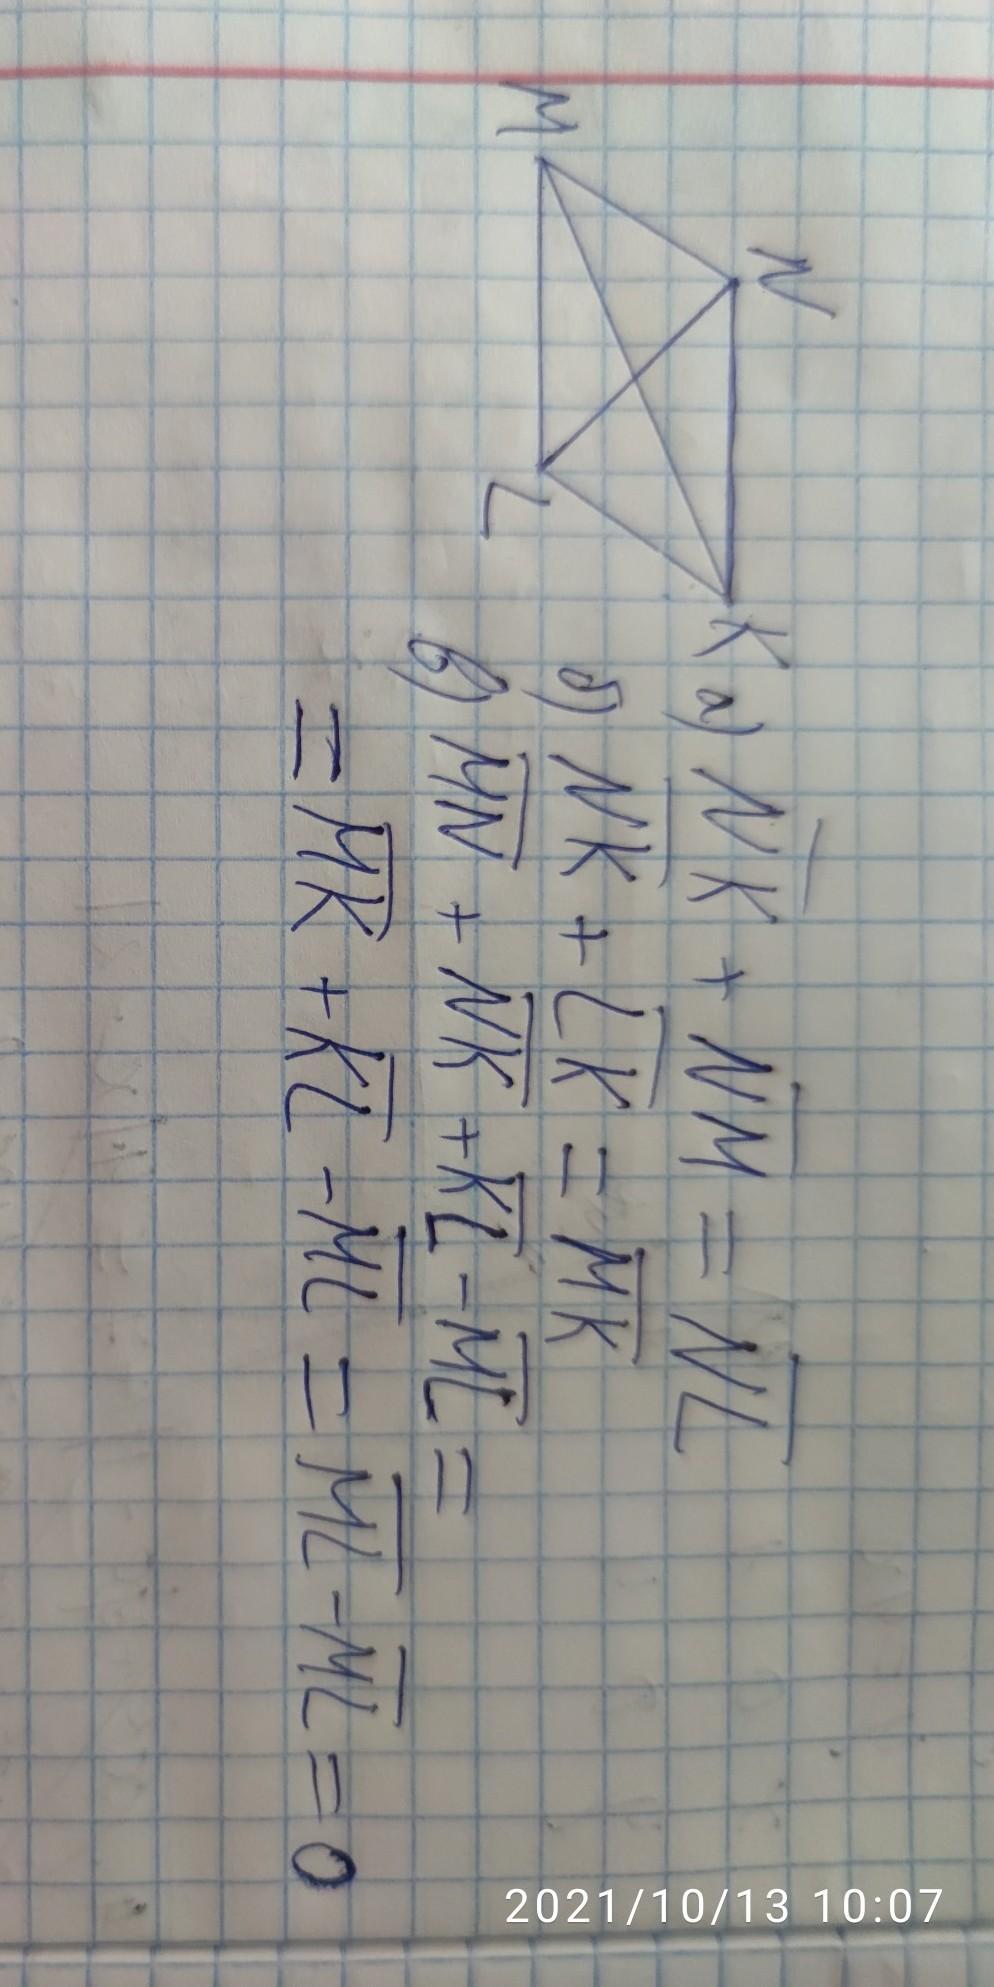 N K
M L
а) N̅K̅ + N̅M̅ = N̅L̅
б) N̅K̅ + L̅K̅ = M̅K̅
в) M̅N̅ + N̅K̅ + K̅L̅ - M̅L̅ =
= M̅K̅ + K̅L̅ - M̅L̅ = M̅L̅ - M̅L̅ = 0
2021/10/13 10:07